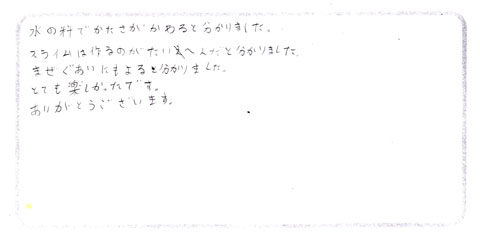 水の料でかたさがかわると分かりました。
スライムは作るのがたい変へんだと分かりました。
まぜぐあいにもよると分かりました。
とても楽しかったです。
ありがとうございます。